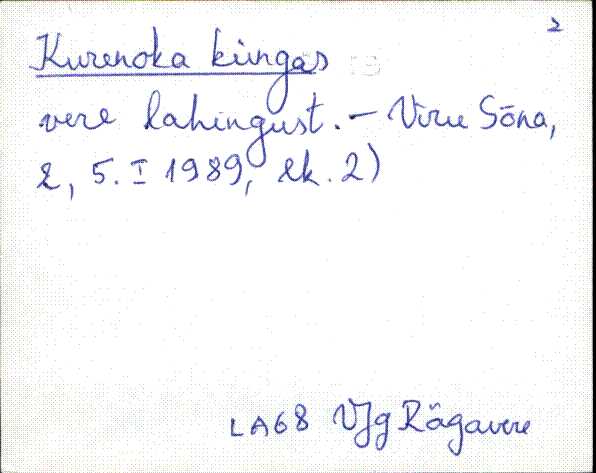 2
Kurenoka küngas
vere lahingust. – Viru Sõna,
2, 5. I 1989, lk. 2)
LA68 VJg Rägavere